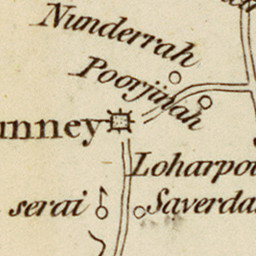 Nunderrah
Poorjinah
unney
Loharpo
serai
Saverda